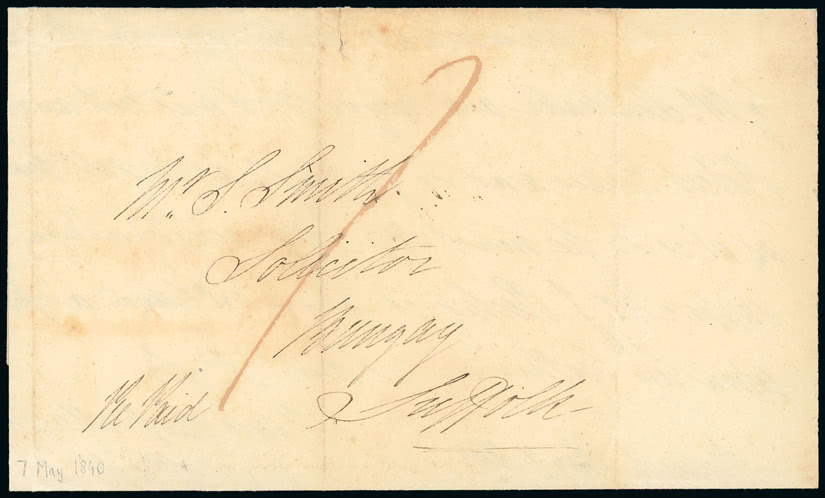 Mr. S. Smith
Solicitor
Bungay
Pre Paid
Suffolk
1
7 May 1840